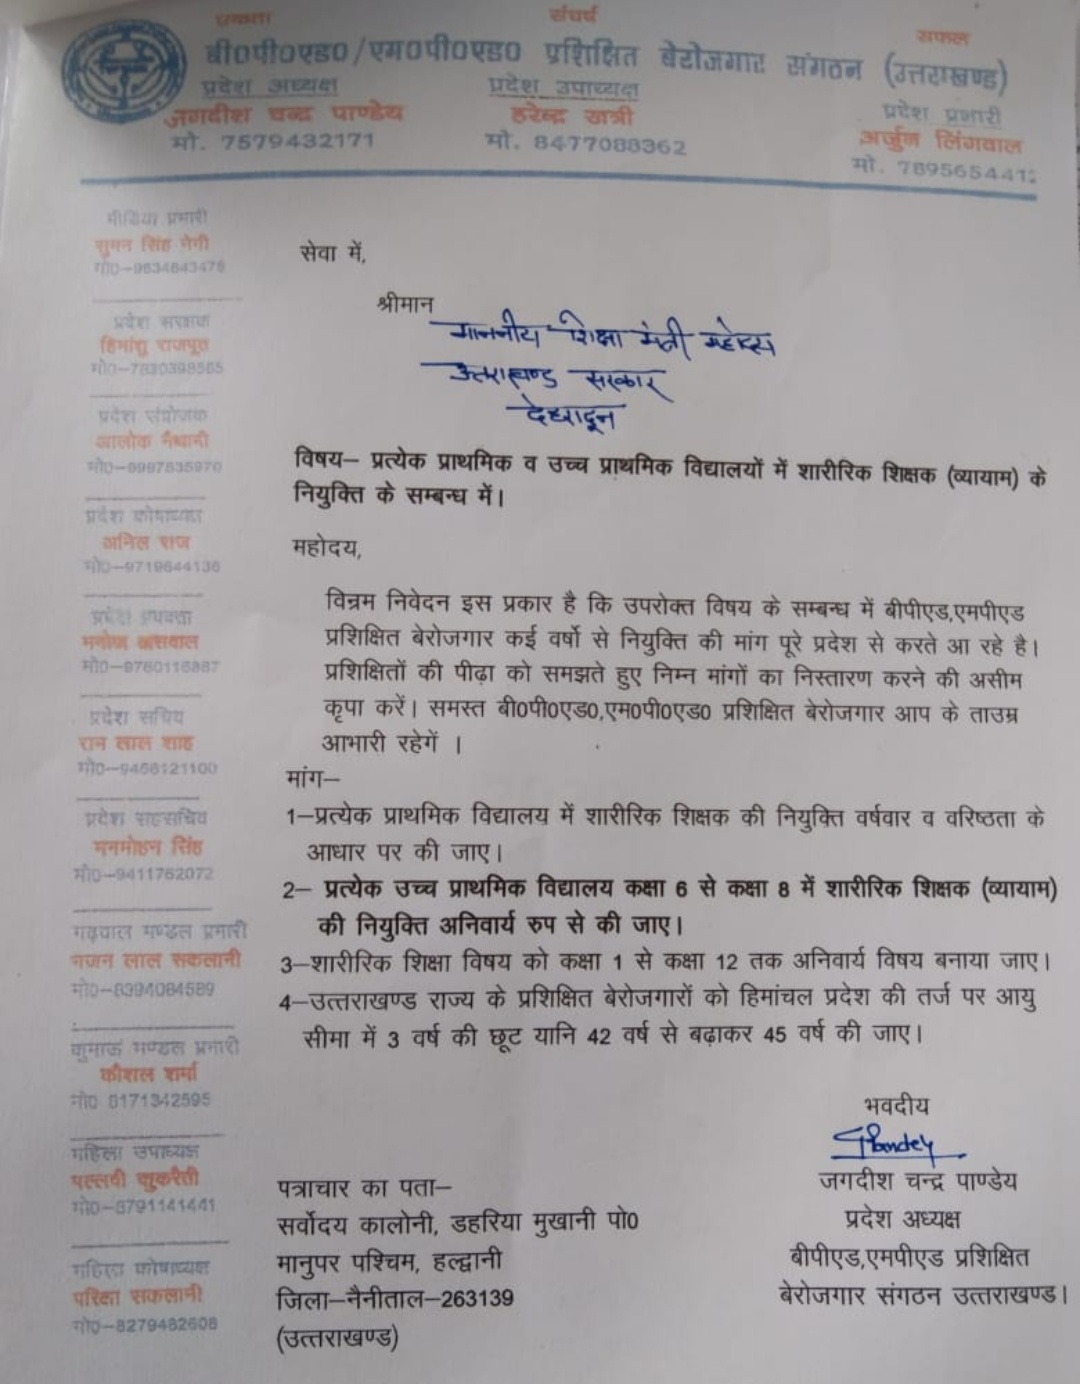 एकता
संघर्ष
सफल
बी0पी0एड0/एम0पी0एड0 प्रशिक्षित बेरोजगार संगठन (उत्तराखण्ड)
प्रदेश अध्यक्ष
जगदीश चन्द्र पाण्डेय
मो. 7579432171
प्रदेश उपाध्यक्ष
हरेन्द्र खत्री
मो. 8477088362
प्रदेश प्रभारी
अर्जुन लिंगवाल
मो. 789565441
मीडिया प्रभारी
सुमन सिंह नेगी
मो0-9634843476
प्रदेश संरक्षक
हिमांशु राजपूत
मो0-7830398565
प्रदेश संयोजक
आलोक नैथानी
मो0-9997835970
प्रदेश कोषाध्यक्ष
अनिल राज
मो0-9719644136
प्रदेश प्रवक्ता
मनोज
मो0-9760116887
प्रदेश सचिव
राम लाल शाह
मो0-9456121100
प्रदेश सहसचिव
मनमोहन सिंह
मो0-9411762072
गढ़वाल मण्डल प्रभारी
लाल सकलानी
मो0-8394084589
कुमाऊं मण्डल प्रभारी
कौशल शर्मा
मो0 8171342595
महिला उपाध्यक्ष
पल्लवी कुकरैती
मो0-8791141441
महिला कोषाध्यक्ष
सकलानी
मो0-8279482608
सेवा में,
श्रीमान
माननीय शिक्षा मंत्री महोदय
उत्तराखण्ड सरकार
देहरादून
विषय– प्रत्येक प्राथमिक व उच्च प्राथमिक विद्यालयों में शारीरिक शिक्षक (व्यायाम) के
नियुक्ति के सम्बन्ध में।
महोदय,
विन्रम निवेदन इस प्रकार है कि उपरोक्त विषय के सम्बन्ध में बीपीएड,एमपीएड
प्रशिक्षित बेरोजगार कई वर्षो से नियुक्ति की मांग पूरे प्रदेश से करते आ रहे है।
प्रशिक्षितों की पीढ़ा को समझते हुए निम्न मांगों का निस्तारण करने की असीम
कृपा करें। समस्त बी0पी0एड0,एम0पी0एड0 प्रशिक्षित बेरोजगार आप के ताउम्र
आभारी रहेगें ।
मांग–
1–प्रत्येक प्राथमिक विद्यालय में शारीरिक शिक्षक की नियुक्ति वर्षवार व वरिष्ठता के
आधार पर की जाए।
2– प्रत्येक उच्च प्राथमिक विद्यालय कक्षा 6 से कक्षा 8 में शारीरिक शिक्षक (व्यायाम)
की नियुक्ति अनिवार्य रुप से की जाए।
3–शारीरिक शिक्षा विषय को कक्षा 1 से कक्षा 12 तक अनिवार्य विषय बनाया जाए।
4–उत्तराखण्ड राज्य के प्रशिक्षित बेरोजगारों को हिमांचल प्रदेश की तर्ज पर आयु
सीमा में 3 वर्ष की छूट यानि 42 वर्ष से बढ़ाकर 45 वर्ष की जाए।
भवदीय
जगदीश चन्द्र पाण्डेय
प्रदेश अध्यक्ष
बीपीएड,एमपीएड प्रशिक्षित
बेरोजगार संगठन उत्तराखण्ड।
पत्राचार का पता–
सर्वोदय कालोनी, डहरिया मुखानी पो0
मानुपर पश्चिम, हल्द्वानी
जिला–नैनीताल–263139
(उत्तराखण्ड)